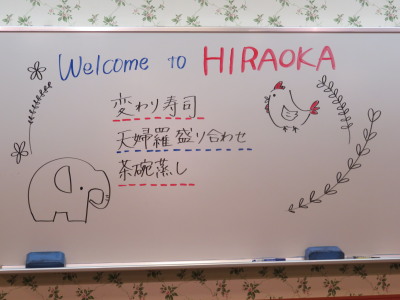 Welcome to HIRAOKA
変わり寿司
天婦羅盛り合わせ
茶碗蒸し